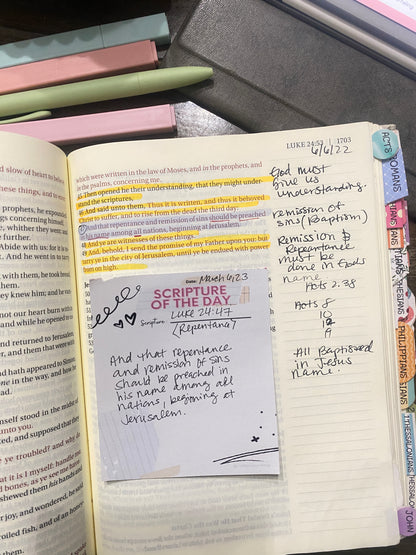 LUKE 24:53 1703
6/6/22
which were written in the law of Moses, and in the prophets, and
in the psalms, concerning me.
45 Then opened he their understanding, that they might under-
stand the scriptures,
46 And said unto them, Thus it is written, and thus it behoved
Christ to suffer, and to rise from the dead the third day:
47 And that repentance and remission of sins should be preached in
his name among all nations, beginning at Jerusalem.
48 And ye are witnesses of these things.
49 And, behold, I send the promise of my Father upon you: but
tarry ye in the city of Jerusalem, until ye be endued with power
from on high.
Date: March 6, 23
SCRIPTURE
OF THE DAY
Scripture: LUKE 24:47
(Repentance)
And that repentance
and remission of sins
should be preached in
his name among all
nations, beginning at
Jerusalem.
God must
give us
understanding.
remission of
sins (Baptism)
Remission &
Repentance
must be
done in Gods
name
Acts 2.38
Acts 8
10
19
9
All Baptised
in Jesus
name.
slow of heart to
these things, and to
prophets, he expounded
ngs concerning himself.
, whither they went;
Abide with us: for it is
And he went in to
with them, he took bread,
nd they knew him; and he
not our heart burn within
and while he opened to
nd returned to Jerusalem,
hath appeared to Simon.
himself stood in the midst of
unto you.
and supposed that they
re ye troubled? and why do
that it is I myself: handle me,
bones, as ye see me have.
shewed them his hands and
r joy, and wondered, he
roiled fish, and of an honey
ACTS
ROMANS
PHILIPPIANS
1 THESSALONIANS
JOHN